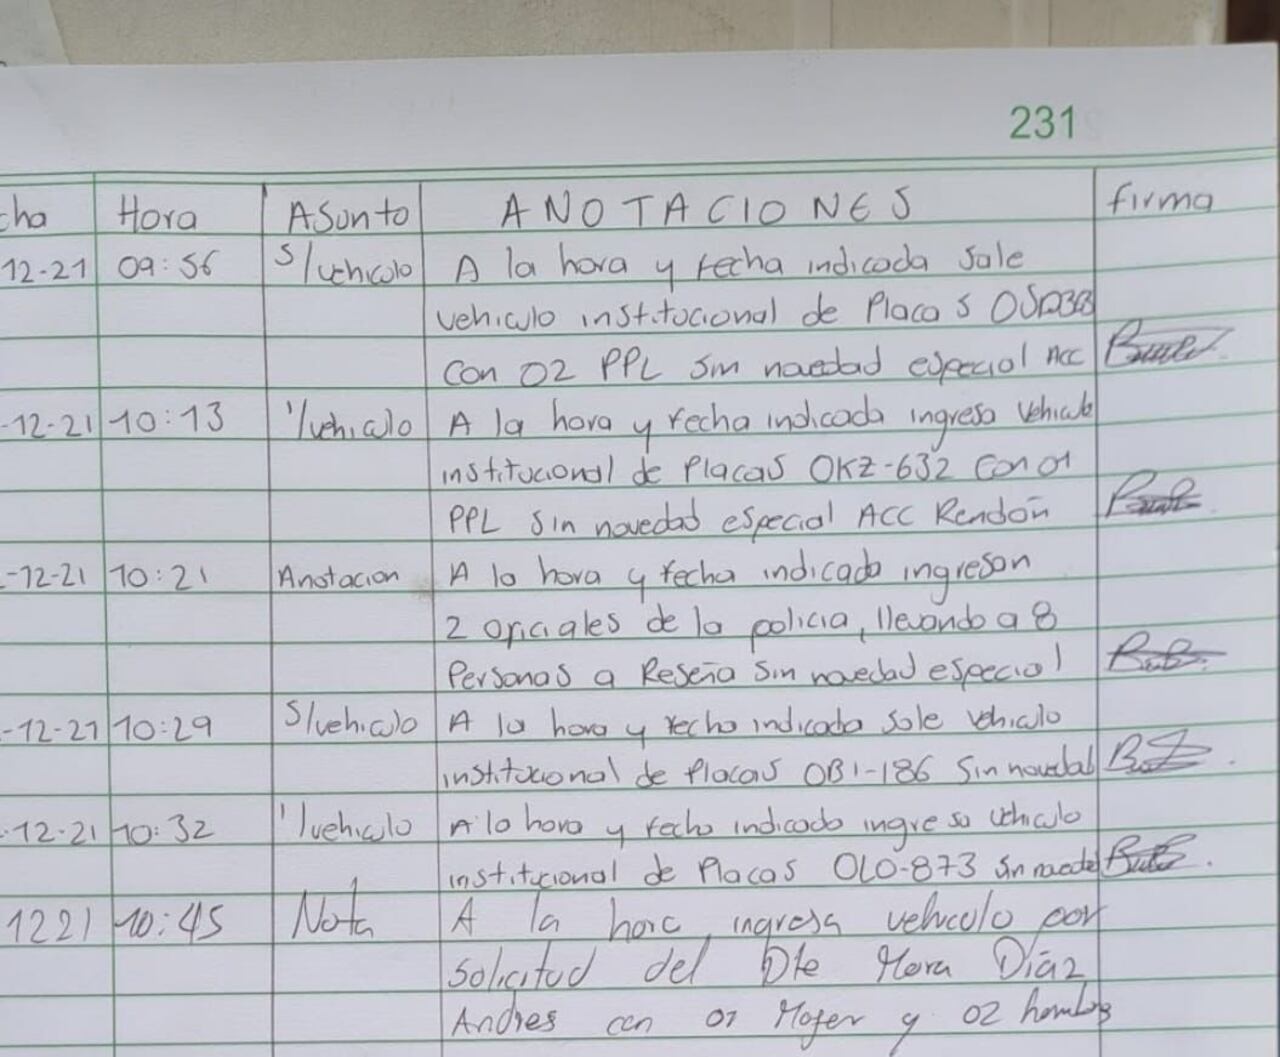 231
cha Hora Asunto ANOTACIONES firma
12-21 09:56 S/vehiculo A la hora y fecha indicada sale
vehiculo institucional de Placas
con 02 PPL sin novedad especial Acc
-12-21 10:13 I/vehiculo A la hora y fecha indicada ingresa vehiculo
institucional de Placas OKZ-632 con 01
PPL sin novedad especial ACC Rendon
-12-21 10:21 Anotacion A la hora y fecha indicada ingresan
2 oficiales de la policia, llevando a 8
Personas a Reseña sin novedad especial
-12-21 10:29 S/vehiculo A la hora y fecha indicada sale vehiculo
institucional de Placas OBI-186 sin novedad
-12-21 10:32 I/vehiculo A la hora y fecha indicada ingresa vehiculo
institucional de Placas OLO-873 sin novedad
1221 10:45 Nota A la hora ingresa vehiculo por
solicitud del Dte Mora Díaz
Andres con 01 Mujer y 02 hombres